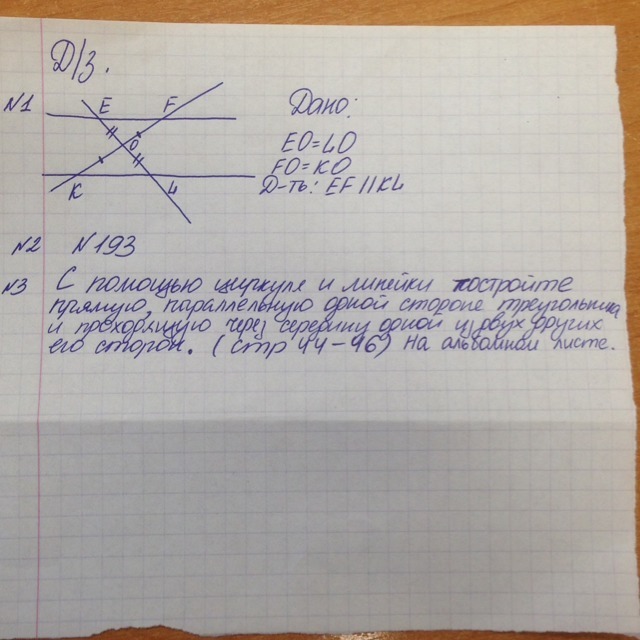 Д/з.
№1
E F
O
K L
Дано:
EO=LO
FO=KO
Д-ть: EF || KL
№2 №193
№3 С помощью циркуля и линейки постройте
прямую, параллельную одной стороне треугольника
и проходящую через середину одной из двух других
его сторон. (стр 44-46) на альбомном листе.